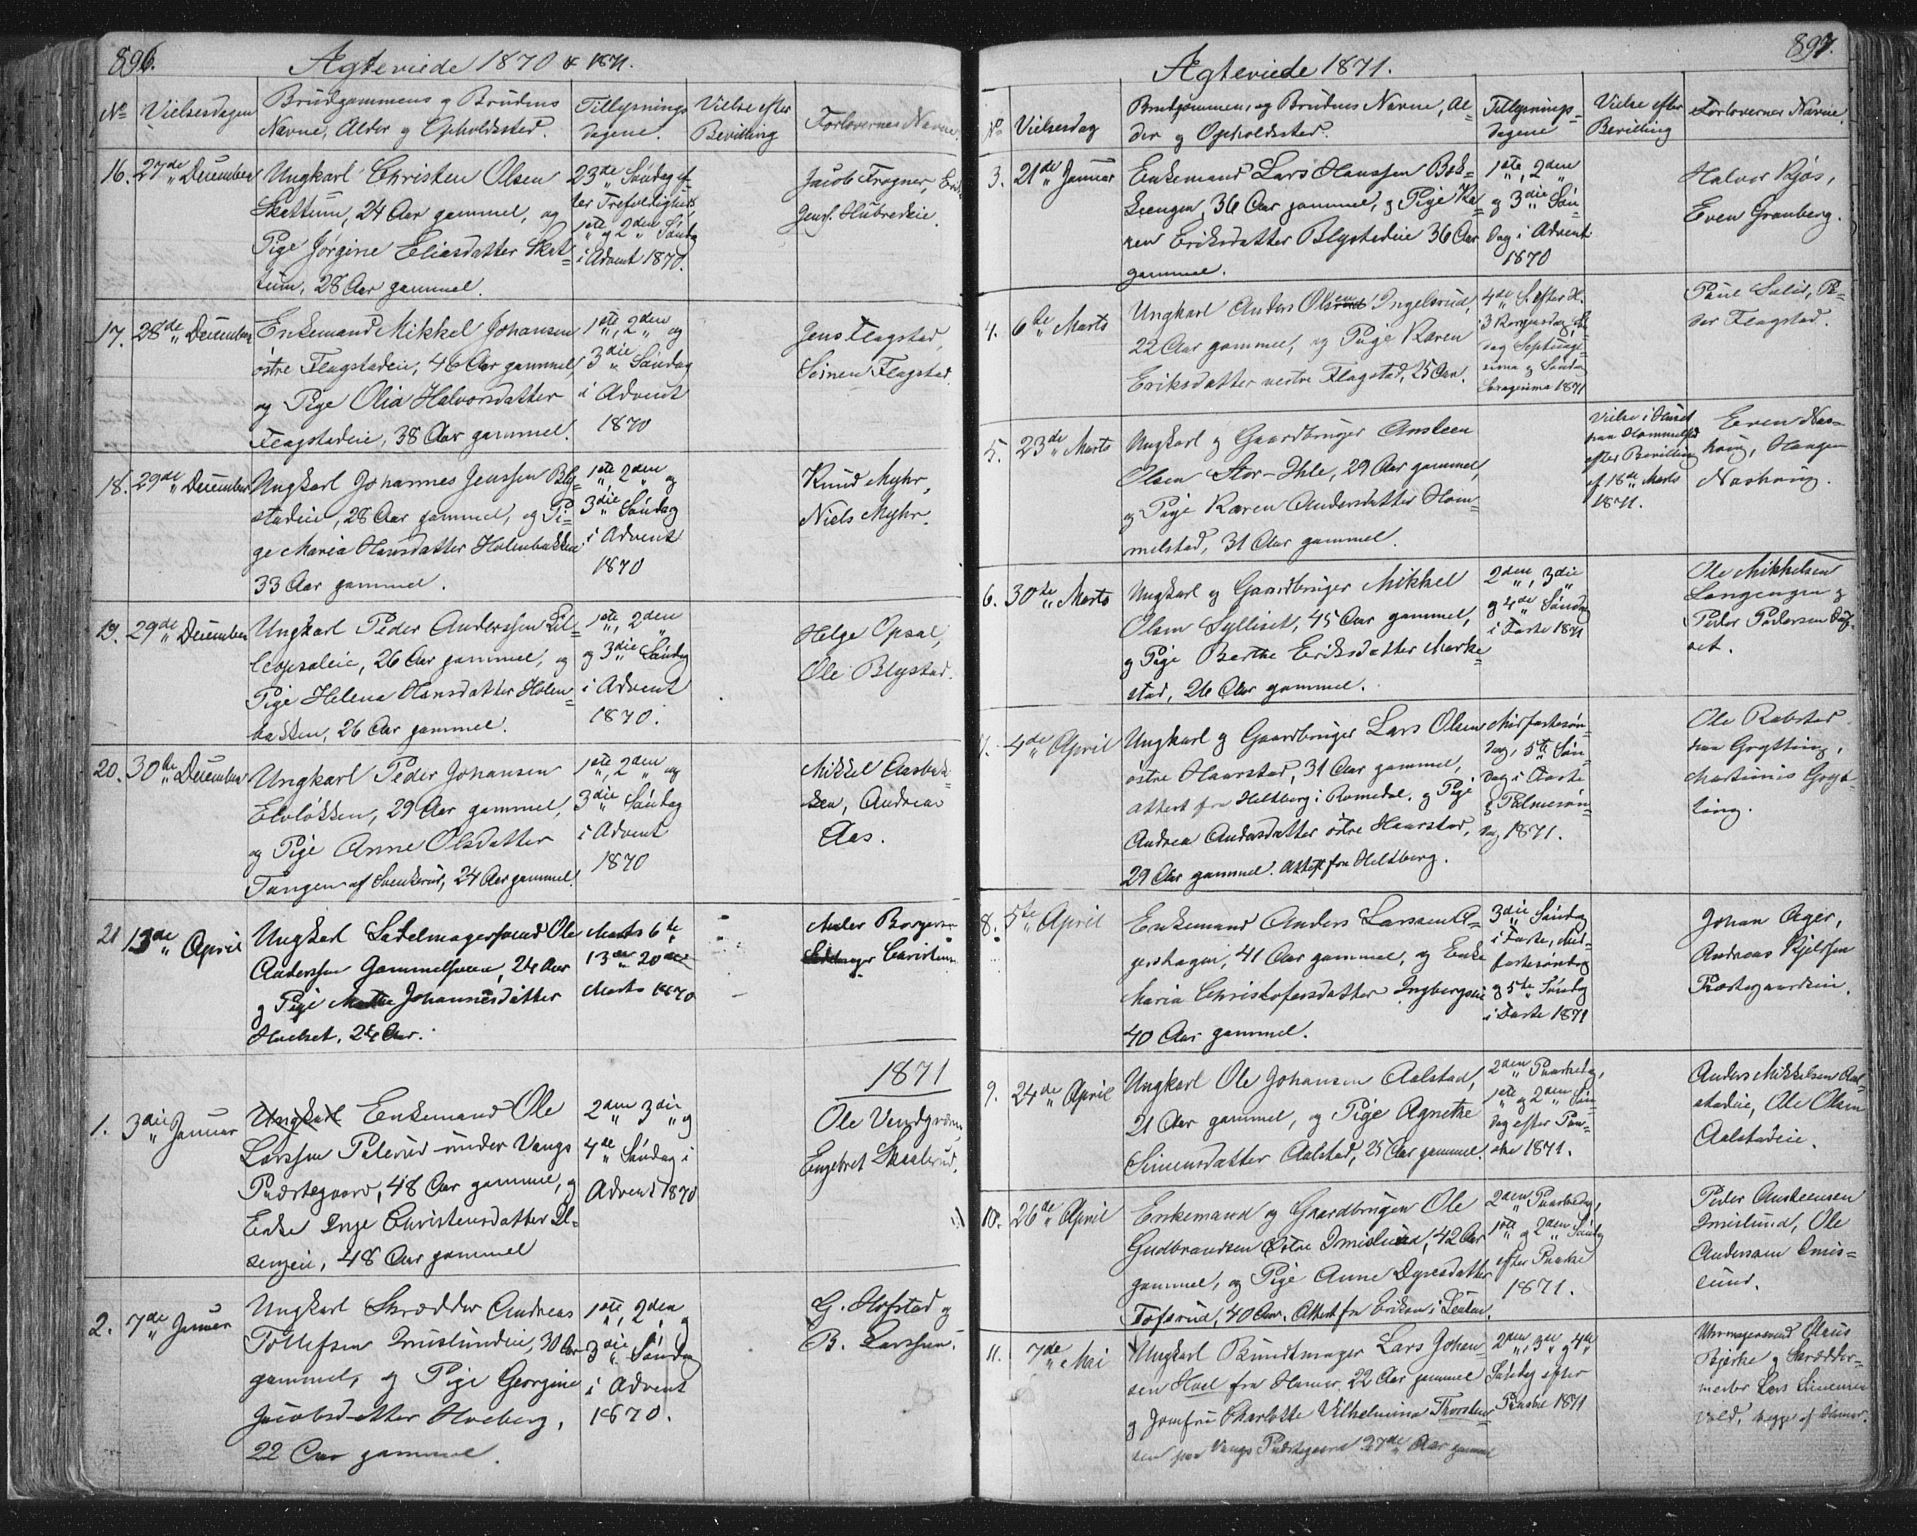 896.
Ægteviede 1870 & 1871.
No
Vielsesdagen
Brudgommens og Brudens
Navne, Alder og Opholdssted.
Tillysnings
dagene.
Vielse efter
Bevilling
Forlovernes Navne.
16. 27de December
Ungkarl Christen Olsen
Skattum, 24 Aar gammel, og
Pige Jørgine Eliasdatter Skat-
tum, 28 Aar gammel.
23de Søndag ef-
ter Trefoldighed
1ste og 2den Søndag
i Advent 1870.
Jacob Frogner,
Hubredeie.
17. 28de December
Enkemand Mikkel Johansen
østre Flagstadeie, 46 Aar gammel,
og Pige Olia Halvorsdatter
Flagstadeie, 38 Aar gammel.
1ste, 2den og
3die Søndag
i Advent
1870
Jens Flagstad,
Seinen Flagstad.
18. 29de December
Ungkarl Johannes Jenssen Bly-
stadeie, 28 Aar gammel, og Pi-
ge Maria Hansdatter Holenbakken
33 Aar gammel.
1ste, 2den og
3die Søndag
i Advent
1870
Knud Myhr,
Niels Myhr.
19. 29de December
Ungkarl Peder Anderssen Lil-
leopsaleie, 26 Aar gammel, og
Pige Helena Hansdatter Holen-
bakken, 26 Aar gammel.
1ste, 2den
og 3die Søndag
i Advent
1870.
Helge Opsal,
Ole Blystad.
20. 30te December
Ungkarl Peder Johansen
Elvløkken, 29 Aar gammel,
og Pige Anne Olsdatter
Tangen af Svenkerud, 24 Aar gammel.
1ste, 2den og
3die Søndag
i Advent
1870
Mikkel Aasbak-
ken, Andreas
Aas.
21 13de April
Ungkarl Sadelmagersvend Ole
Anderssen Gammelsveen, 24 Aar
og Pige Mathe Johannesdatter
Hoelset, 24 Aar.
Marts 6te,
13de 20de
Marts 1870
Borger
Christian
1871
1. 3die Januar
Ungkarl Enkemand Ole
Larssen Pelerud under Vangs
Præstegaard, 48 Aar gammel, og
Enke Inge Christensdatter
48 Aar gammel
2den 3die og
4de Søndag i
Advent 1870
Ole
Engebret Skaalerud.
2. 7de Januar
Ungkarl Skrædder Andreas
Tollefsen Imislundeie, 30 Aar
gammel, og Pige Georgine
Jacobsdatter Hoeberg,
22 Aar gammel.
1ste, 2den og
3die Søndag
i Advent
1870.
G. Hofstad og
B. Larssen.
897.
Ægteviede 1871.
No
Vielsesdag
Brudgommens og Brudens Navne, Al-
der og Opholdssted.
Tillysnings-
dagene
Vielse efter
Bevilling
Forlovernes Navne.
3. 21de Januar
Enkemand Lars Hanssen Bæk-
36 Aar gammel, og Pige Ka-
ren Eriksdatter Blystadeie 36 Aar
gammel.
1ste, 2den
og 3die Søn-
dag i Advent
1870
Halvor Kjøs,
Even Granberg.
4. 6te Marts
Ungkarl Anders Olsen Ingelsrud,
22 Aar gammel, og Pige Karen
Eriksdatter vestre Flagstad, 25 Aar.
4de S. efter H.
3 Kongersdag,
dag Septuage-
sima og Søndag
1871
Paul Salid, Pe-
der Flagstad.
5. 23de Marts
Ungkarl og Gaardbruger Ansteen
Olsen Stor-Ihle, 29 Aar gammel,
og Pige Karen Andersdatter Hom-
melstad, 31 Aar gammel.
Vielse i Huset
paa Hommelstad
efter Bevilling
af 18de Marts
1871.
Even Nas-
houg, Haagen
Nashoug.
6. 30te Marts
Ungkarl og Gaardbruger Mikkel
Olsen Sylliset, 45 Aar gammel,
og Pige Berthe Eriksdatter Marke-
stad, 26 Aar gammel.
2den, 3die
og 4de Søndag
i Faste 1871
Ole Mikkelsen
Langengen og
Peder Pedersen
7. 4de April
Ungkarl og Gaardbruger Lars Olsen
østre Haarstad, 31 Aar gammel,
attest fra Heltberg i Romedal, og Pige
Andrea Andersdatter østre Haarstad,
29 Aar gammel. Attest fra Heltberg.
Midfastesøn-
dag, 5te Søn-
dag i Faste
og Palmesøn-
dag 1871.
Ole Rabstad
paa Grytting,
Martinus Gryt-
ting.
8. 5te April
Enkemand Anders Larssen A-
gershagen, 41 Aar gammel, og Enke
Maria Christofersdatter Ingbergseie
40 Aar gammel.
3die Søndag
i Faste, Mid-
fastesøndag
og 5te Søndag
i Faste 1871
Johan Ager,
Andreas Kjelssen
Præstegaardeie.
9. 24de April
Ungkarl Ole Johansen Aalstad,
21 Aar gammel, og Pige Agnethe
Simensdatter Aalstad, 25 Aar gammel.
2den Paaskedag,
1ste og 2den Søn-
dag efter Paa-
ske 1871.
Anders Mikkelsen Aal-
stadeie, Ole Olsen
Aalstadeie.
10. 26de April
Enkemand og Gaardbruger Ole
Gudbrandsen Østre Imislund, 42 Aar
gammel, og Pige Anne Dyresdatter
Tofsrud, 40 Aar. Attest fra Eriksen i Løiten.
2den Paaskedag,
1ste og 2den Søndag
efter Paaske
1871.
Peder Ansteensen
Imislund, Ole
Andersen Imis-
lund.
11. 7de Mai
Ungkarl Bundtmager Lars Johan-
sen Hoel fra Hamar, 22 Aar gammel
og Jomfru Charlotte Vilhelmina Thorsten-
sen paa Vangs Præstegaard 27de Aar gammel
2den, 3die og 4de
Søndag efter
Paaske 1871
Uhrmagersvend Olaus
Bjerke og Skrædder-
mester Lars Simensen
Vold, begge af Hamar.